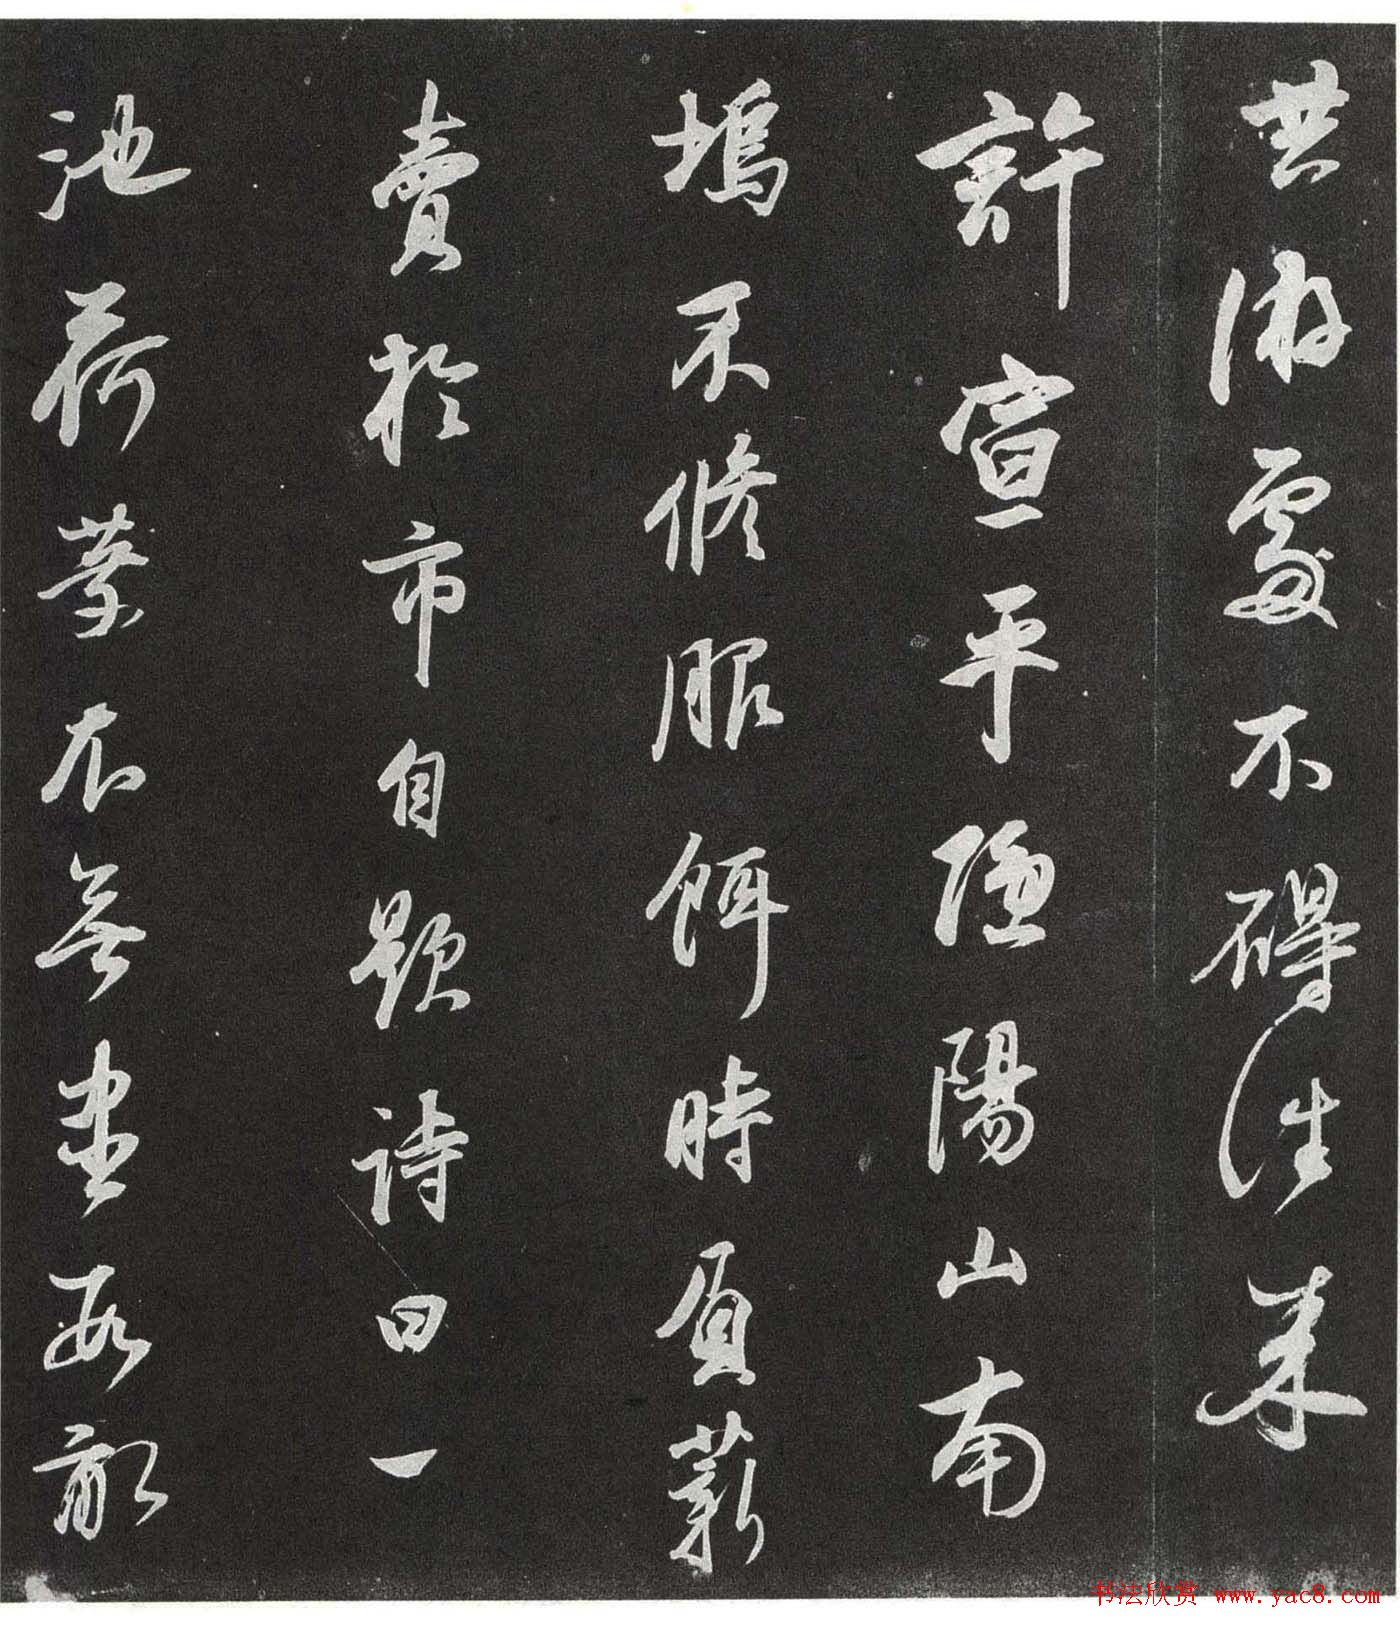 共游處不礙往来
許宣平隱陽山南
塢不修服餌時負薪
賣於市自題詩曰一
池荷葉衣無盡
书法欣赏 www.yac8.com